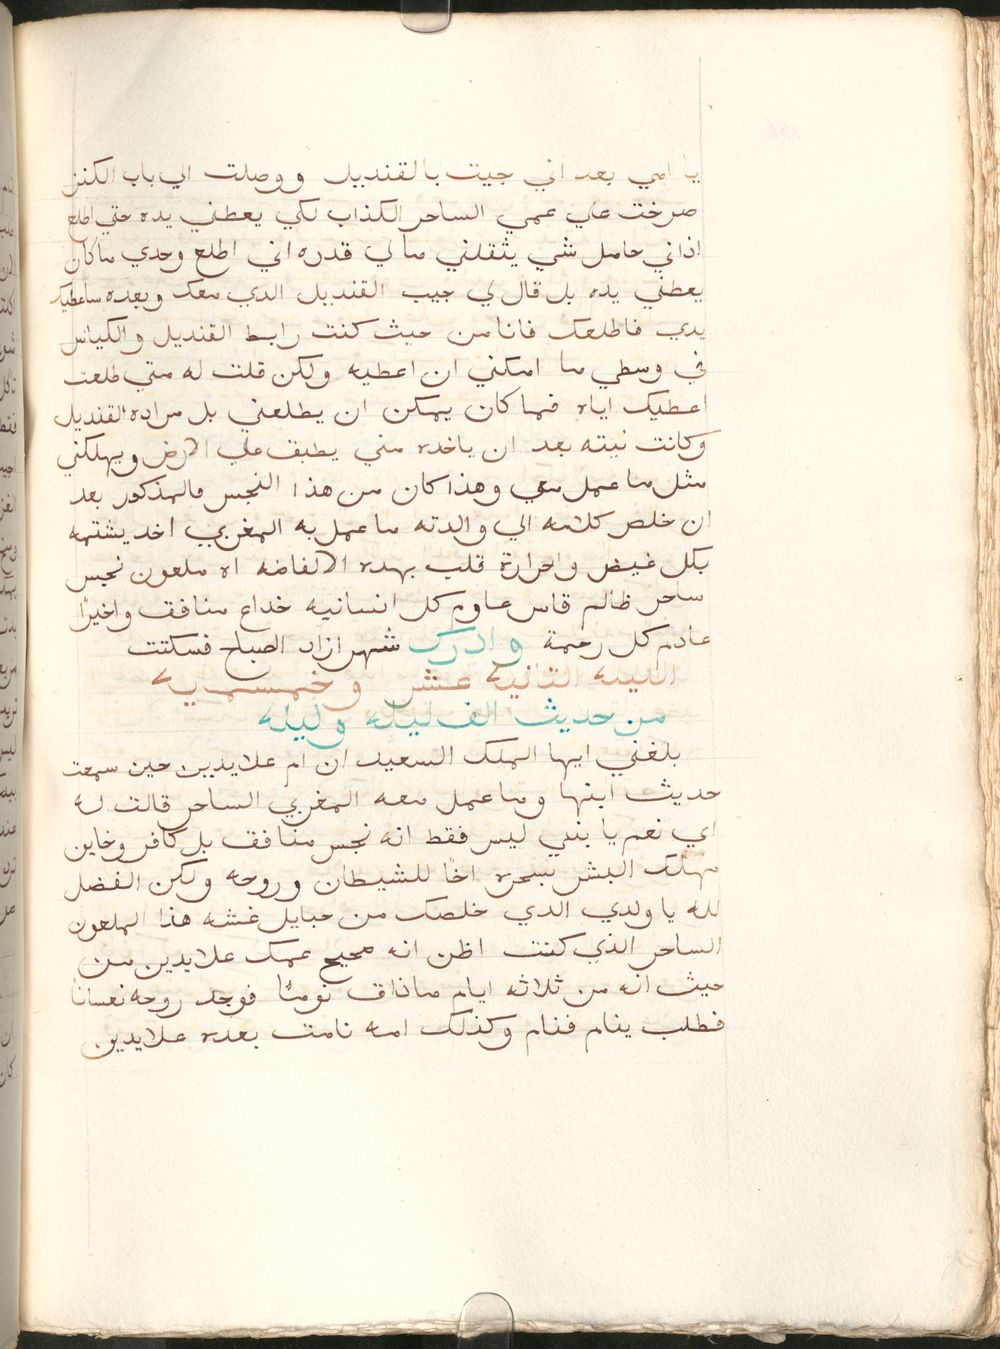 يا امي بعد اني جيت بالقنديل ووصلت الي باب الكنز
صرخت علي عمي الساحر الكذاب لكي يعطني يده حتي اطلع
اذاني حامل شي يثقلني مالي قدره اني اطلع وحدي ماكان
يعطني يده بل قال لي جيب القنديل الدي معك وبعده ساعطيك
يدي فاطلعك فانا من حيث كنت رابط القنديل والكياس
في وسطي ما امكني ان اعطيه ولكن قلت له متي طلعت
اعطيك اياه فما كان يمكن ان يطلعني بل مراده القنديل
وكانت نيته بعد ان ياخده مني يطبق علي الارض ويهلكني
مثل ما عمل معي وهذا كان من هذا النجس فالمذكور بعد
ان خلص كلامه الي والدته ما عمل به المغربي اخد يشتمه
بكل غيض واحرارة قلب بهده الالفاضه اه ملعون نجس
ساحر ظالم قاس عاوم كل انسانيه خداع منافق واخيرًا
عادم كل رحمة وادرك شهرازاد الصباح فسكتت
الليله التانيه عشر وخمسمايه
من حديث الف ليله وليله
بلغني ايها الملك السعيد ان ام علايدين حين سمعت
حديث ابنها وما عمل معه المغربي الساحر قالت له
اي نعم يا بنيي ليس فقط انه نجس منافق بل كافر وخاين
مهلك البشر بسحره اخًا للشيطان وروحه ولكن الفضل
لله يا ولدي الدي خلصك من حبايل غشه هذا الملعون
الساحر الذي كنت اظن انه صحيح عمك علايدين من
حيث انه من ثلاثه ايام ماذاق نومًا فوجد روحه نعسانا
فطلب ينام فنام وكذلك امه نامت بعده علايدين